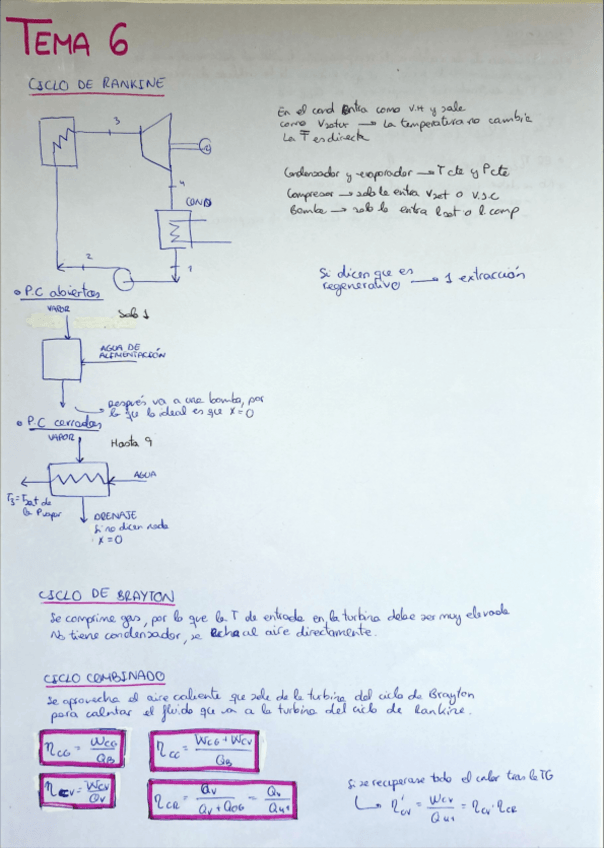 TEMA 6
CICLO DE RANKINE
3
4
COND
2
1
En el cond entra como V.H y sale
como → La temperatura no cambia
La T es directa
Condensador y evaporador → T cte y P cte
Compresor → solo le entra Vsat o V.S.C
Bomba → solo le entra Lsat o L comp
Si dicen que es
regenerativo → 1 extracción
• P.C abiertos
VAPOR
Solo 1
AGUA DE
ALIMENTACIÓN
Después va a una bomba, por
lo que lo ideal es que x=0
• P.C cerrados
VAPOR
Hasta 9
AGUA
T3=Tsat de
la Pvapor
DRENAJE
Si no dicen nada
x=0
CICLO DE BRAYTON
Se comprime gas, por lo que la T de entrada en la turbina debe ser muy elevada
No tiene condensador, se echa al aire directamente.
CICLO COMBINADO
Se aprovecha el aire caliente que sale de la turbina del ciclo de Brayton
para calentar el fluido que va a la turbina del ciclo de Rankine.
ηCG = WCG / QB
ηCC = (WCG + WCV) / QB
ηCV = WCV / QV
ηCR = QV / (QV + QOG) = QV / Q41
Si se recuperase todo el calor tras la TG
η'CV = WCV / Q41 = ηCV · ηCR